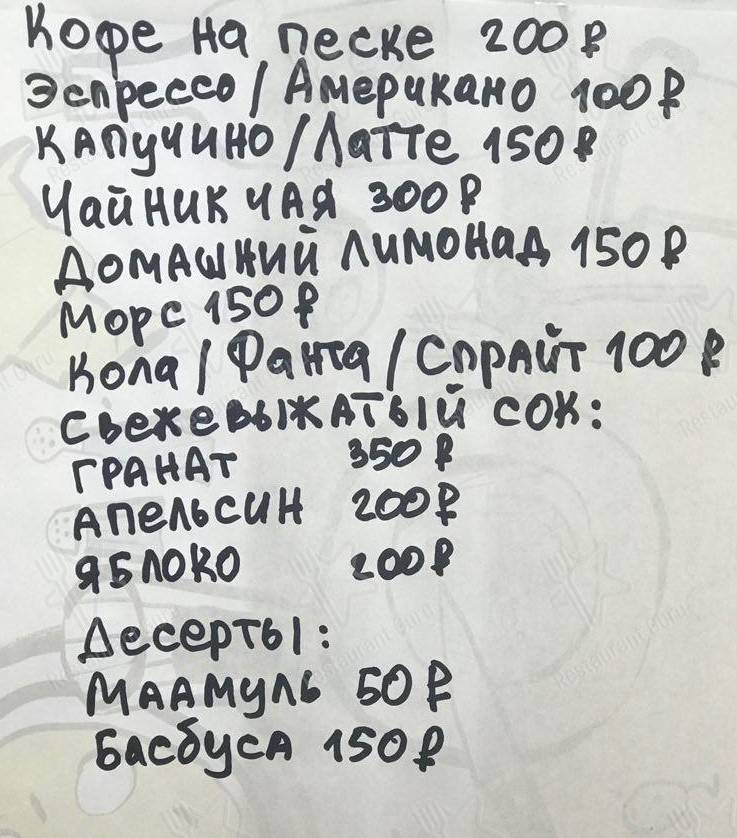 Кофе на песке 200₽
Эспрессо/Американо 100₽
Капучино/Латте 150₽
Чайник чая 300₽
Домашний лимонад 150₽
Морс 150₽
Кола/Фанта/Спрайт 100₽
Свежевыжатый сок:
Гранат 350₽
Апельсин 200₽
Яблоко 200₽
Десерты:
Маамуль 50₽
Басбуса 150₽